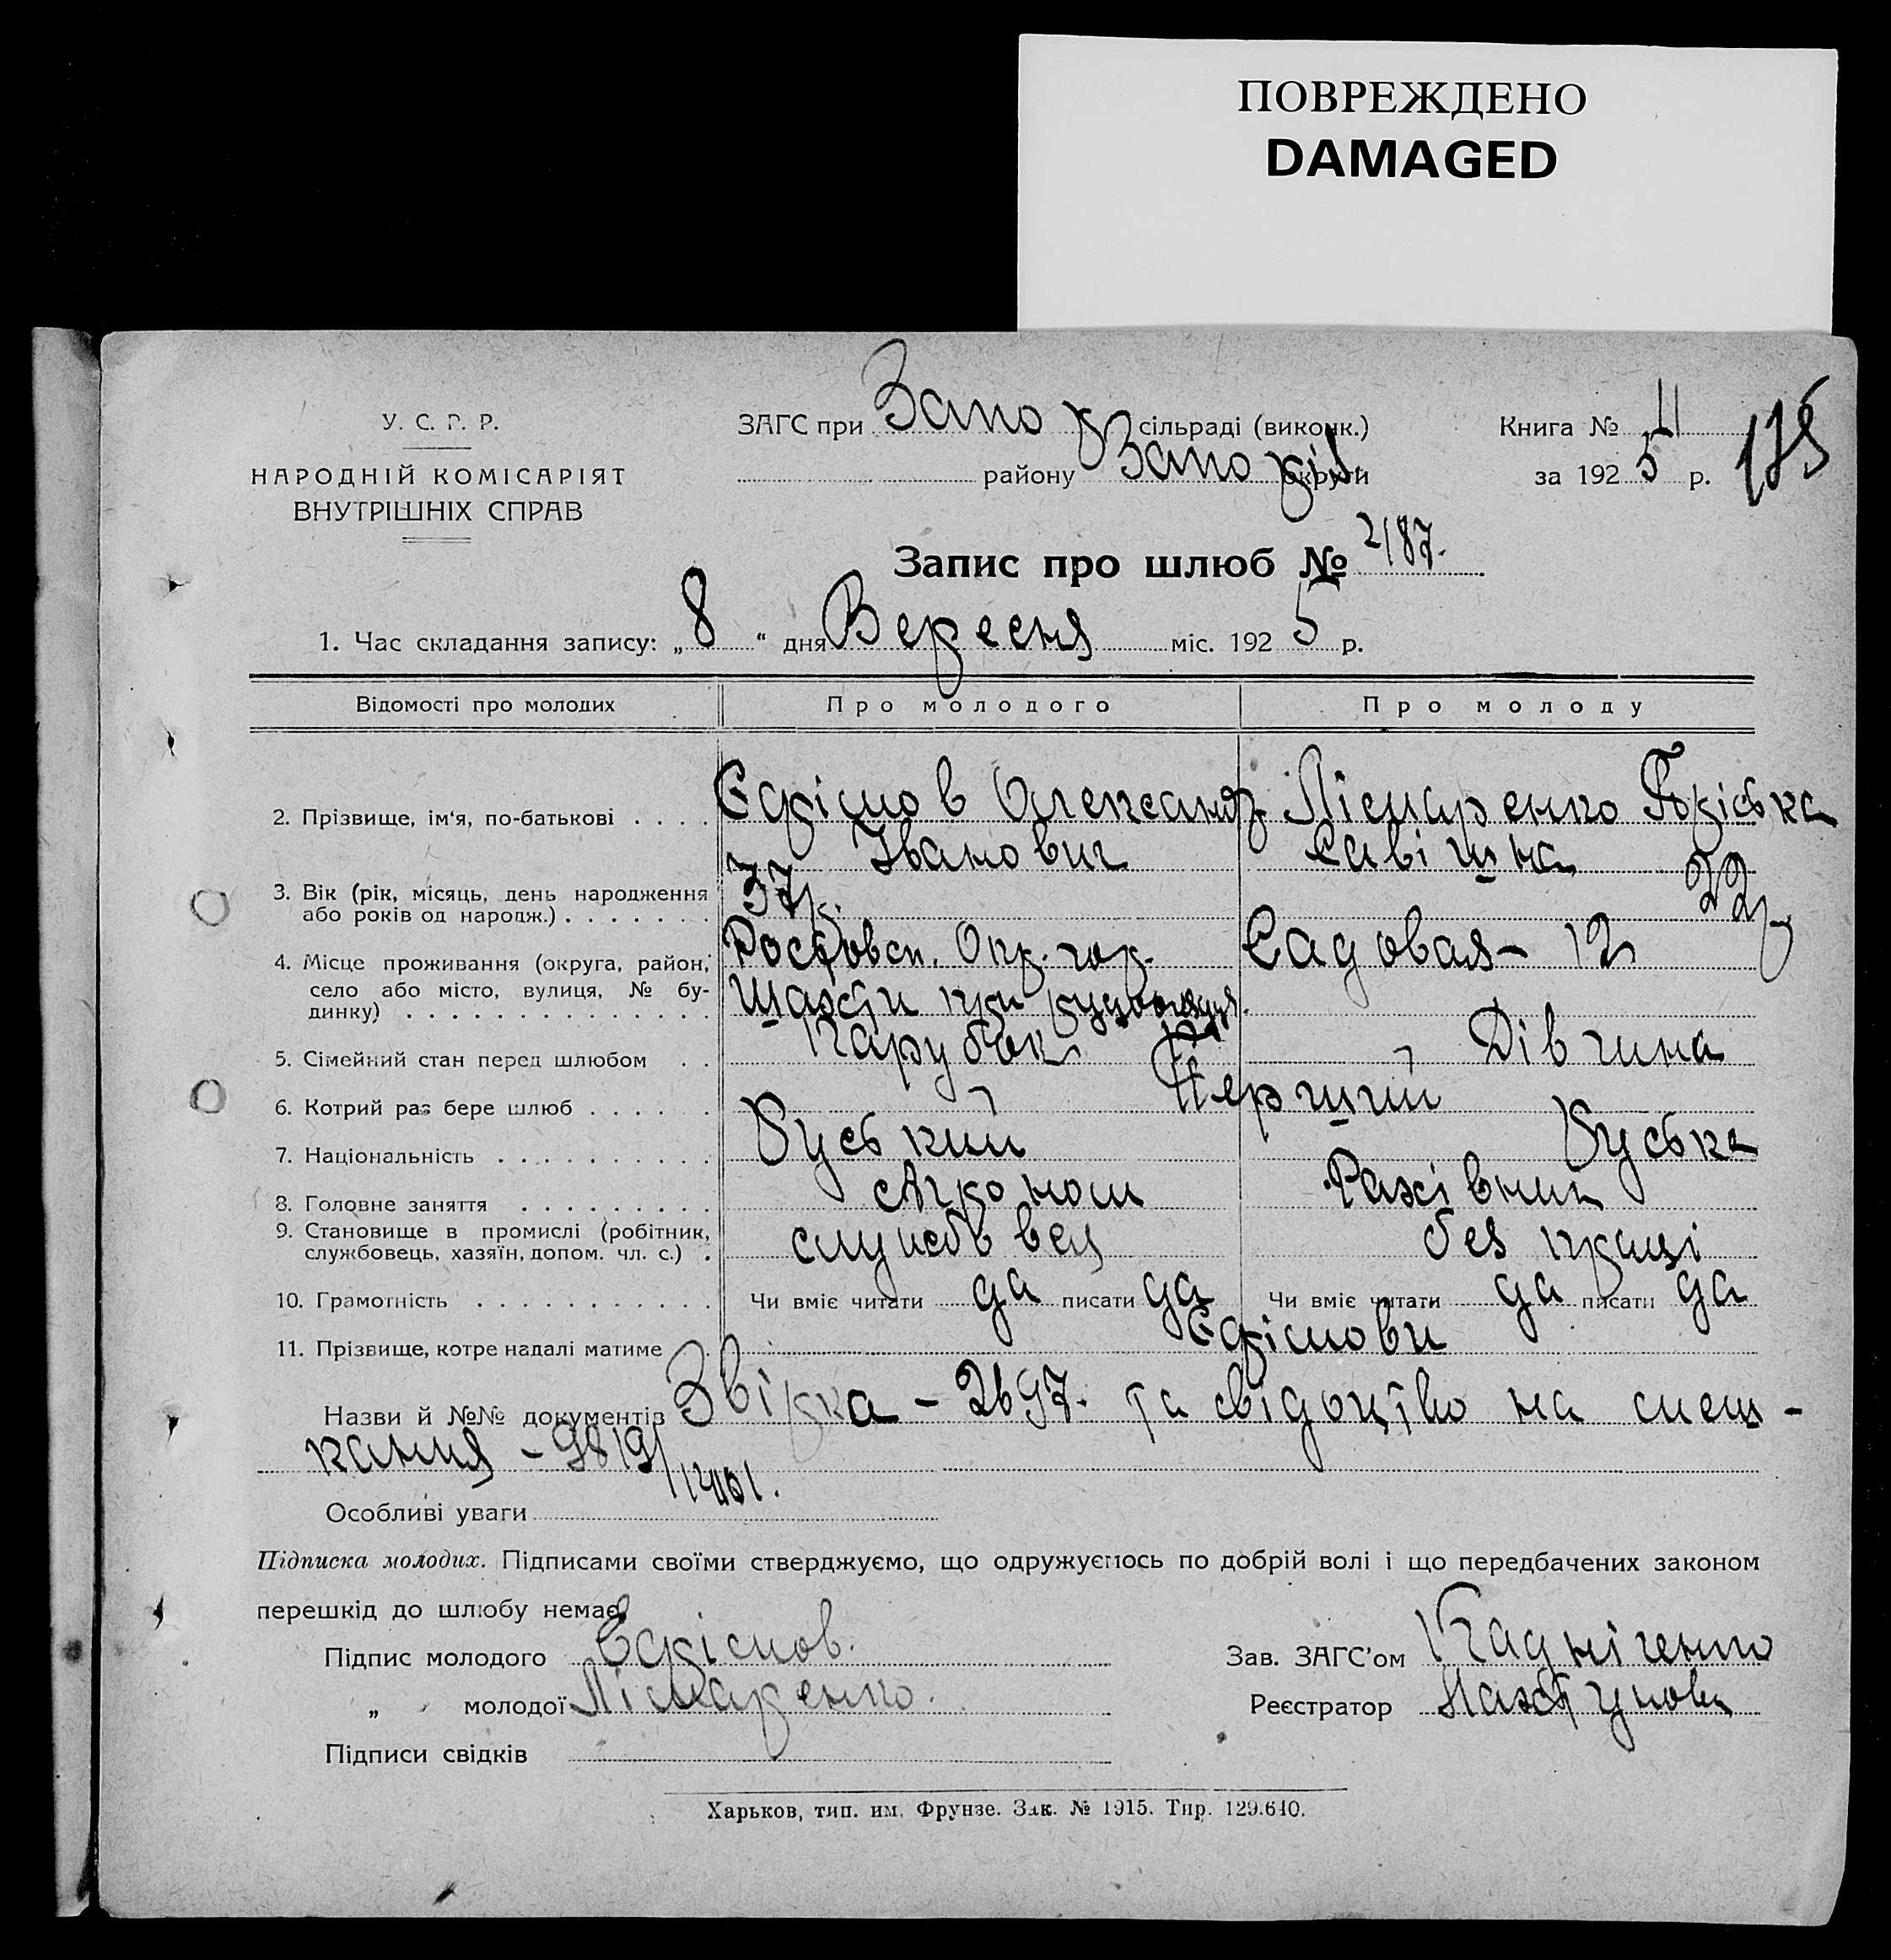 ПОВРЕЖДЕНО
DAMAGED
У. С. Р. Р.
НАРОДНІЙ КОМІСАРІЯТ
ВНУТРІШНІХ СПРАВ
ЗАГС при Запор сільраді (виконк.)
району Запоріз округи
Книга № 11
за 1925 р. 175
Запис про шлюб № 2187.
1. Час складання запису: „8“ дня Вересня міс. 1925 р.
Відомості про молодих Про молодого Про молоду
2. Прізвище, ім‘я, по-батькові . . . . Єфімов Олександр Лісмаренко
Іванович Савішна
3. Вік (рік, місяць, день народження
або років од народж.) . . . . . . . 37р. 22р
4. Місце проживання (округа, район,
село або місто, вулиця, № бу-
динку) . . . . . . . . . . . . . . Ростовск. Окр. гор. Садовая – 12
Шахти при
5. Сімейний стан перед шлюбом . . Парубок Дівчина
6. Котрий раз бере шлюб . . . . . . Перший
7. Національність . . . . . . . . . . Руський Руська
8. Головне заняття . . . . . . . . . Агроном Рахівник
9. Становище в промислі (робітник,
службовець, хазяїн, допом. чл. с.) . службовец без праці
10. Грамотність . . . . . . . . . . . Чи вміє читати да писати да Чи вміє читати да писати да
11. Прізвище, котре надалі матиме Єфімови
Назви й №№ документів Звірка – 2697. та свідоцтво на меш-
кання – 9819/
Особливі уваги
Підписка молодих. Підписами своїми стверджуємо, що одружуємось по добрій волі і що передбачених законом
перешкід до шлюбу немає.
Підпис молодого Єфімов. Зав. ЗАГС’ом Кадніченко
„ молодої Лісмаренко. Реєстратор
Підписи свідків
Харьков, тип. им. Фрунзе. Зак. № 1915. Тир. 129.640.